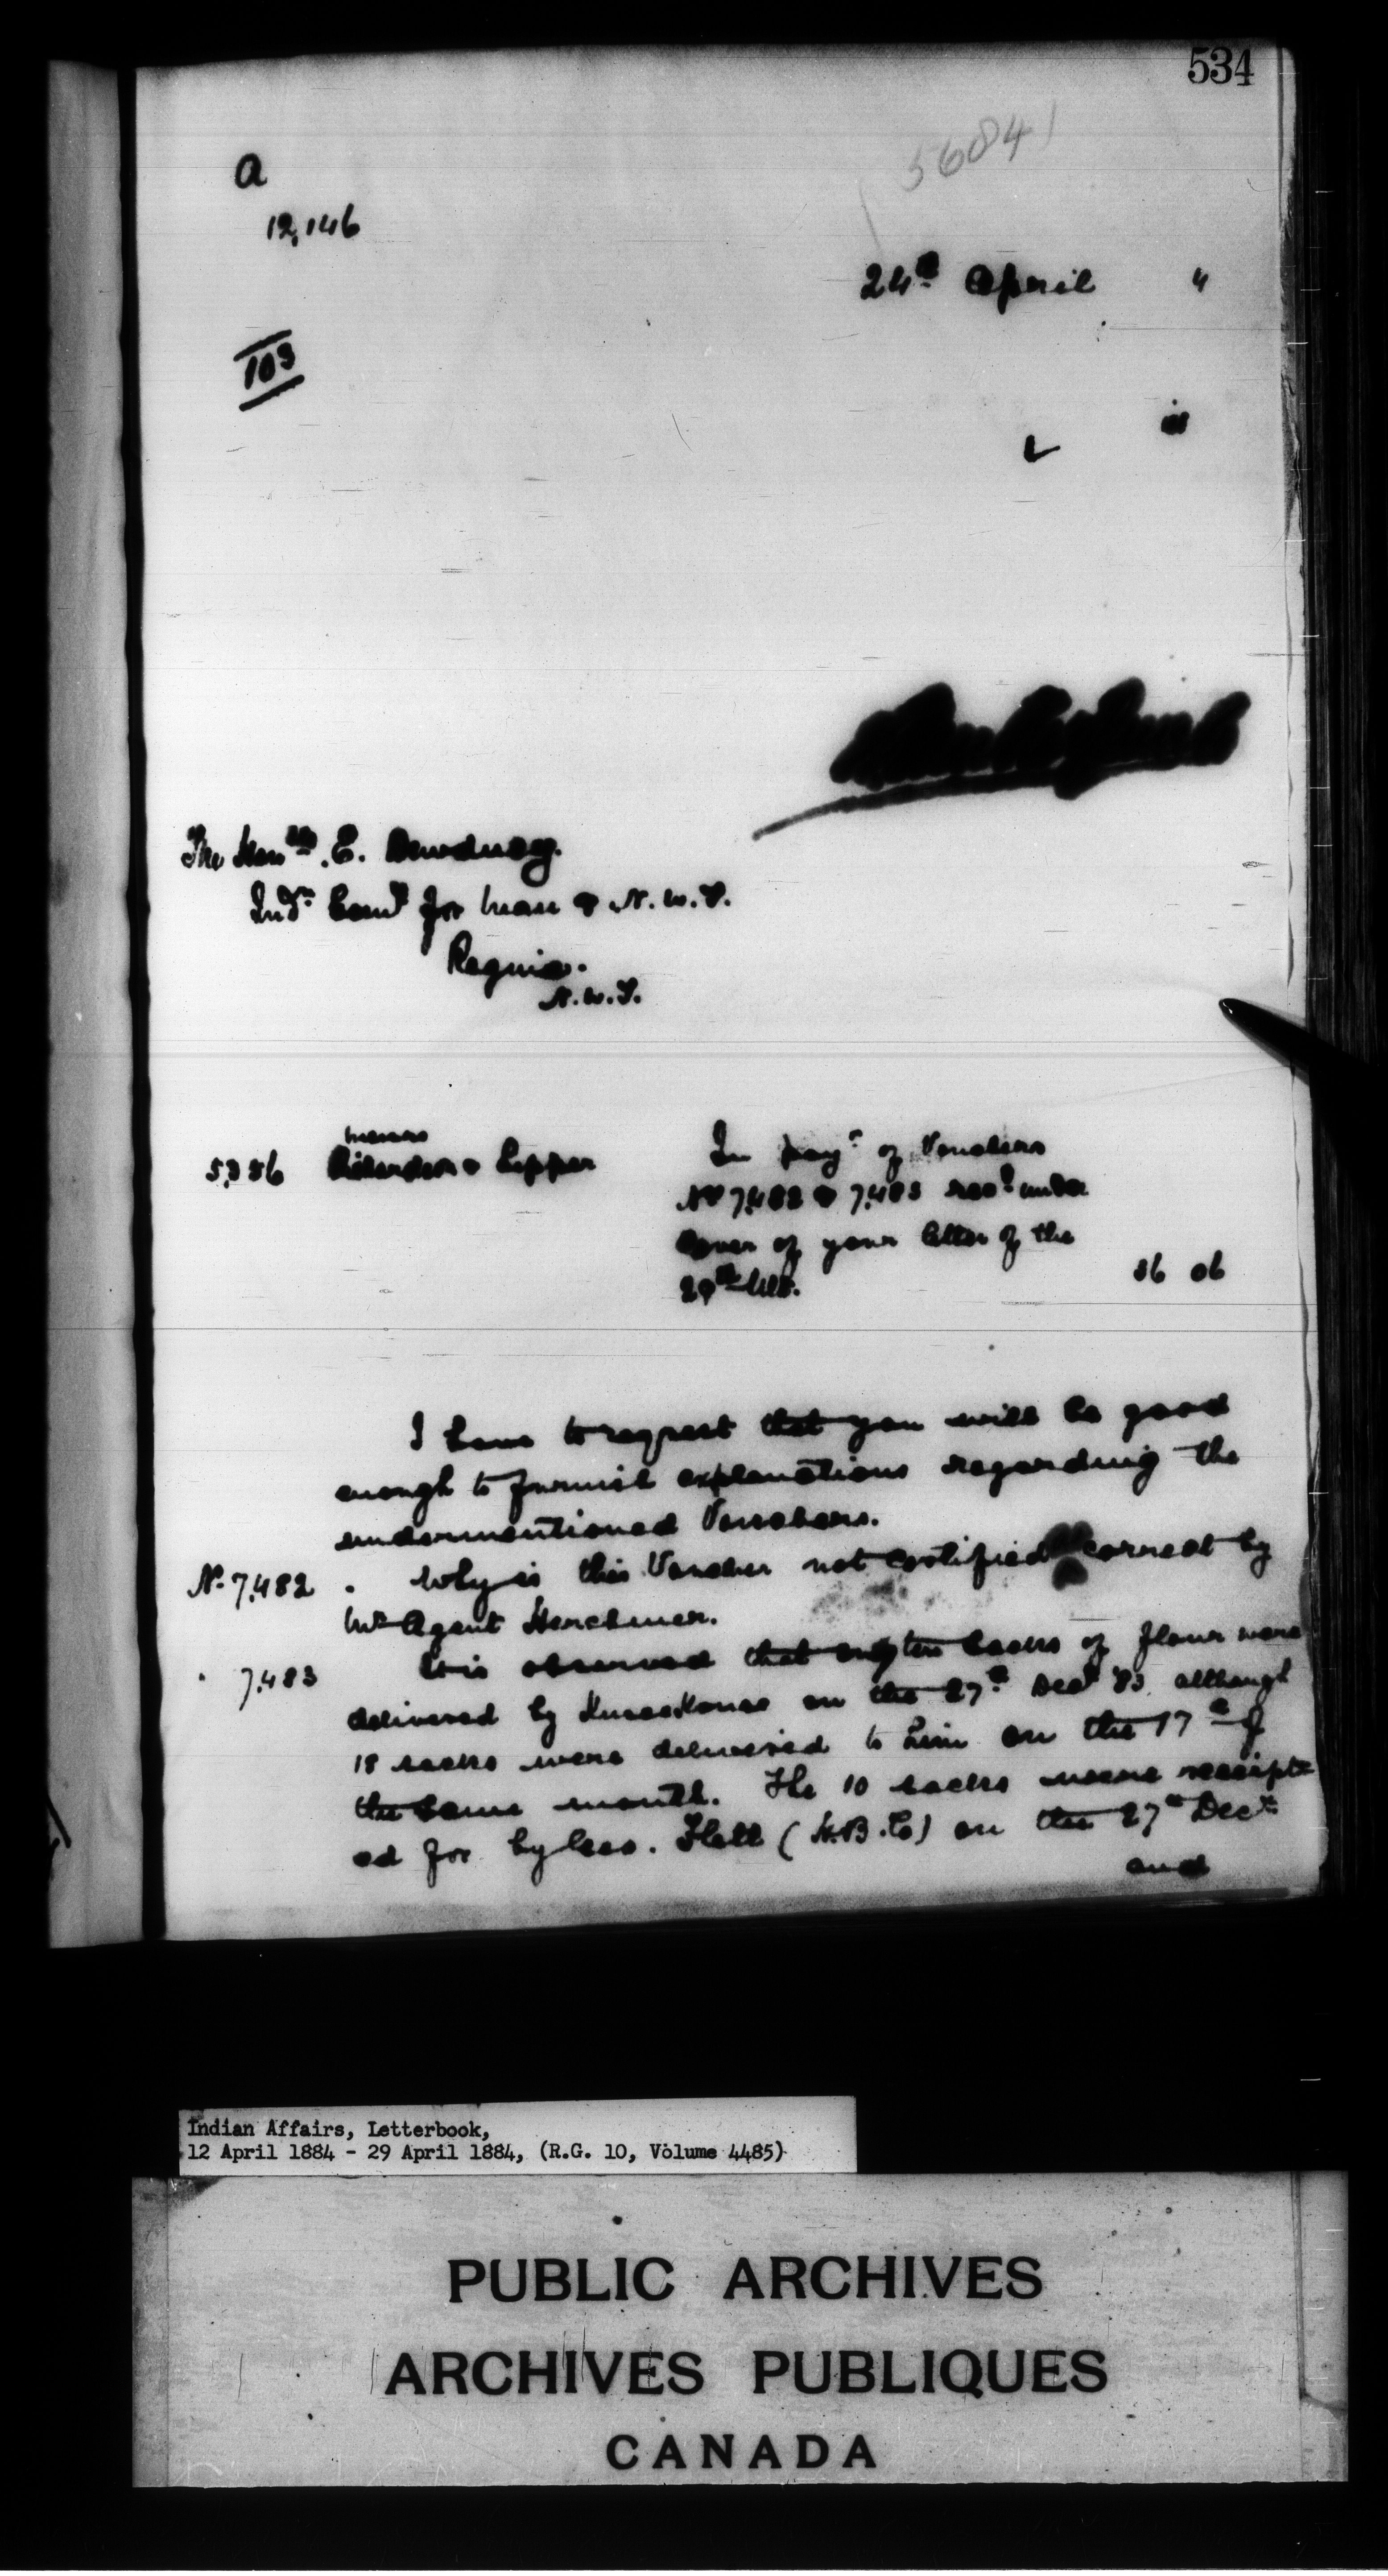 534
56841
A
12,146
24th April "
103
The Honble E. Dewdney.
Indn Comr for Man & N.W.T.
Regina.
N.W.T.
Messrs
& Lepper
In payt of Vouchers
No 7,482 & 7,483 recd under
cover of your letter of the
29th Ult.
36 06
I have to request that you will be good
enough to furnish explanations regarding the
undermentioned Vouchers.
No 7,482 . Why is this Voucher not certified correct by
Mr Agent Herchmer.
" 7,483 It is observed that only ten sacks of flour were
delivered by on the 27th Decr '83 although
18 sacks were delivered to him on the 17th of
the same month. The 10 sacks were receipt
ed for by Geo. (H.B.Co) on the 27th Decr
and
Indian Affairs, Letterbook,
12 April 1884 - 29 April 1884, (R.G. 10, Volume 4485)
PUBLIC ARCHIVES
ARCHIVES PUBLIQUES
CANADA